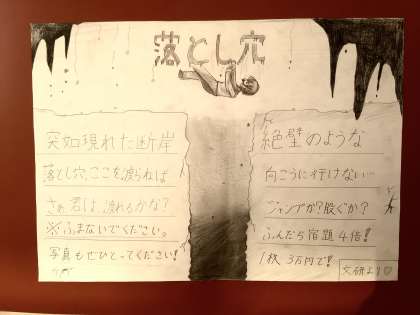 落とし穴
突如現れた断岸
落とし穴,ここを渡らねば
さぁ君は,渡れるかな?
※ふまないでください。
写真もぜひとってください!
絶壁のような
向こうに行けない…
ジャンプか?股ぐか?
ふんだら宿題4倍!
1枚 3万円で!
文研より♡